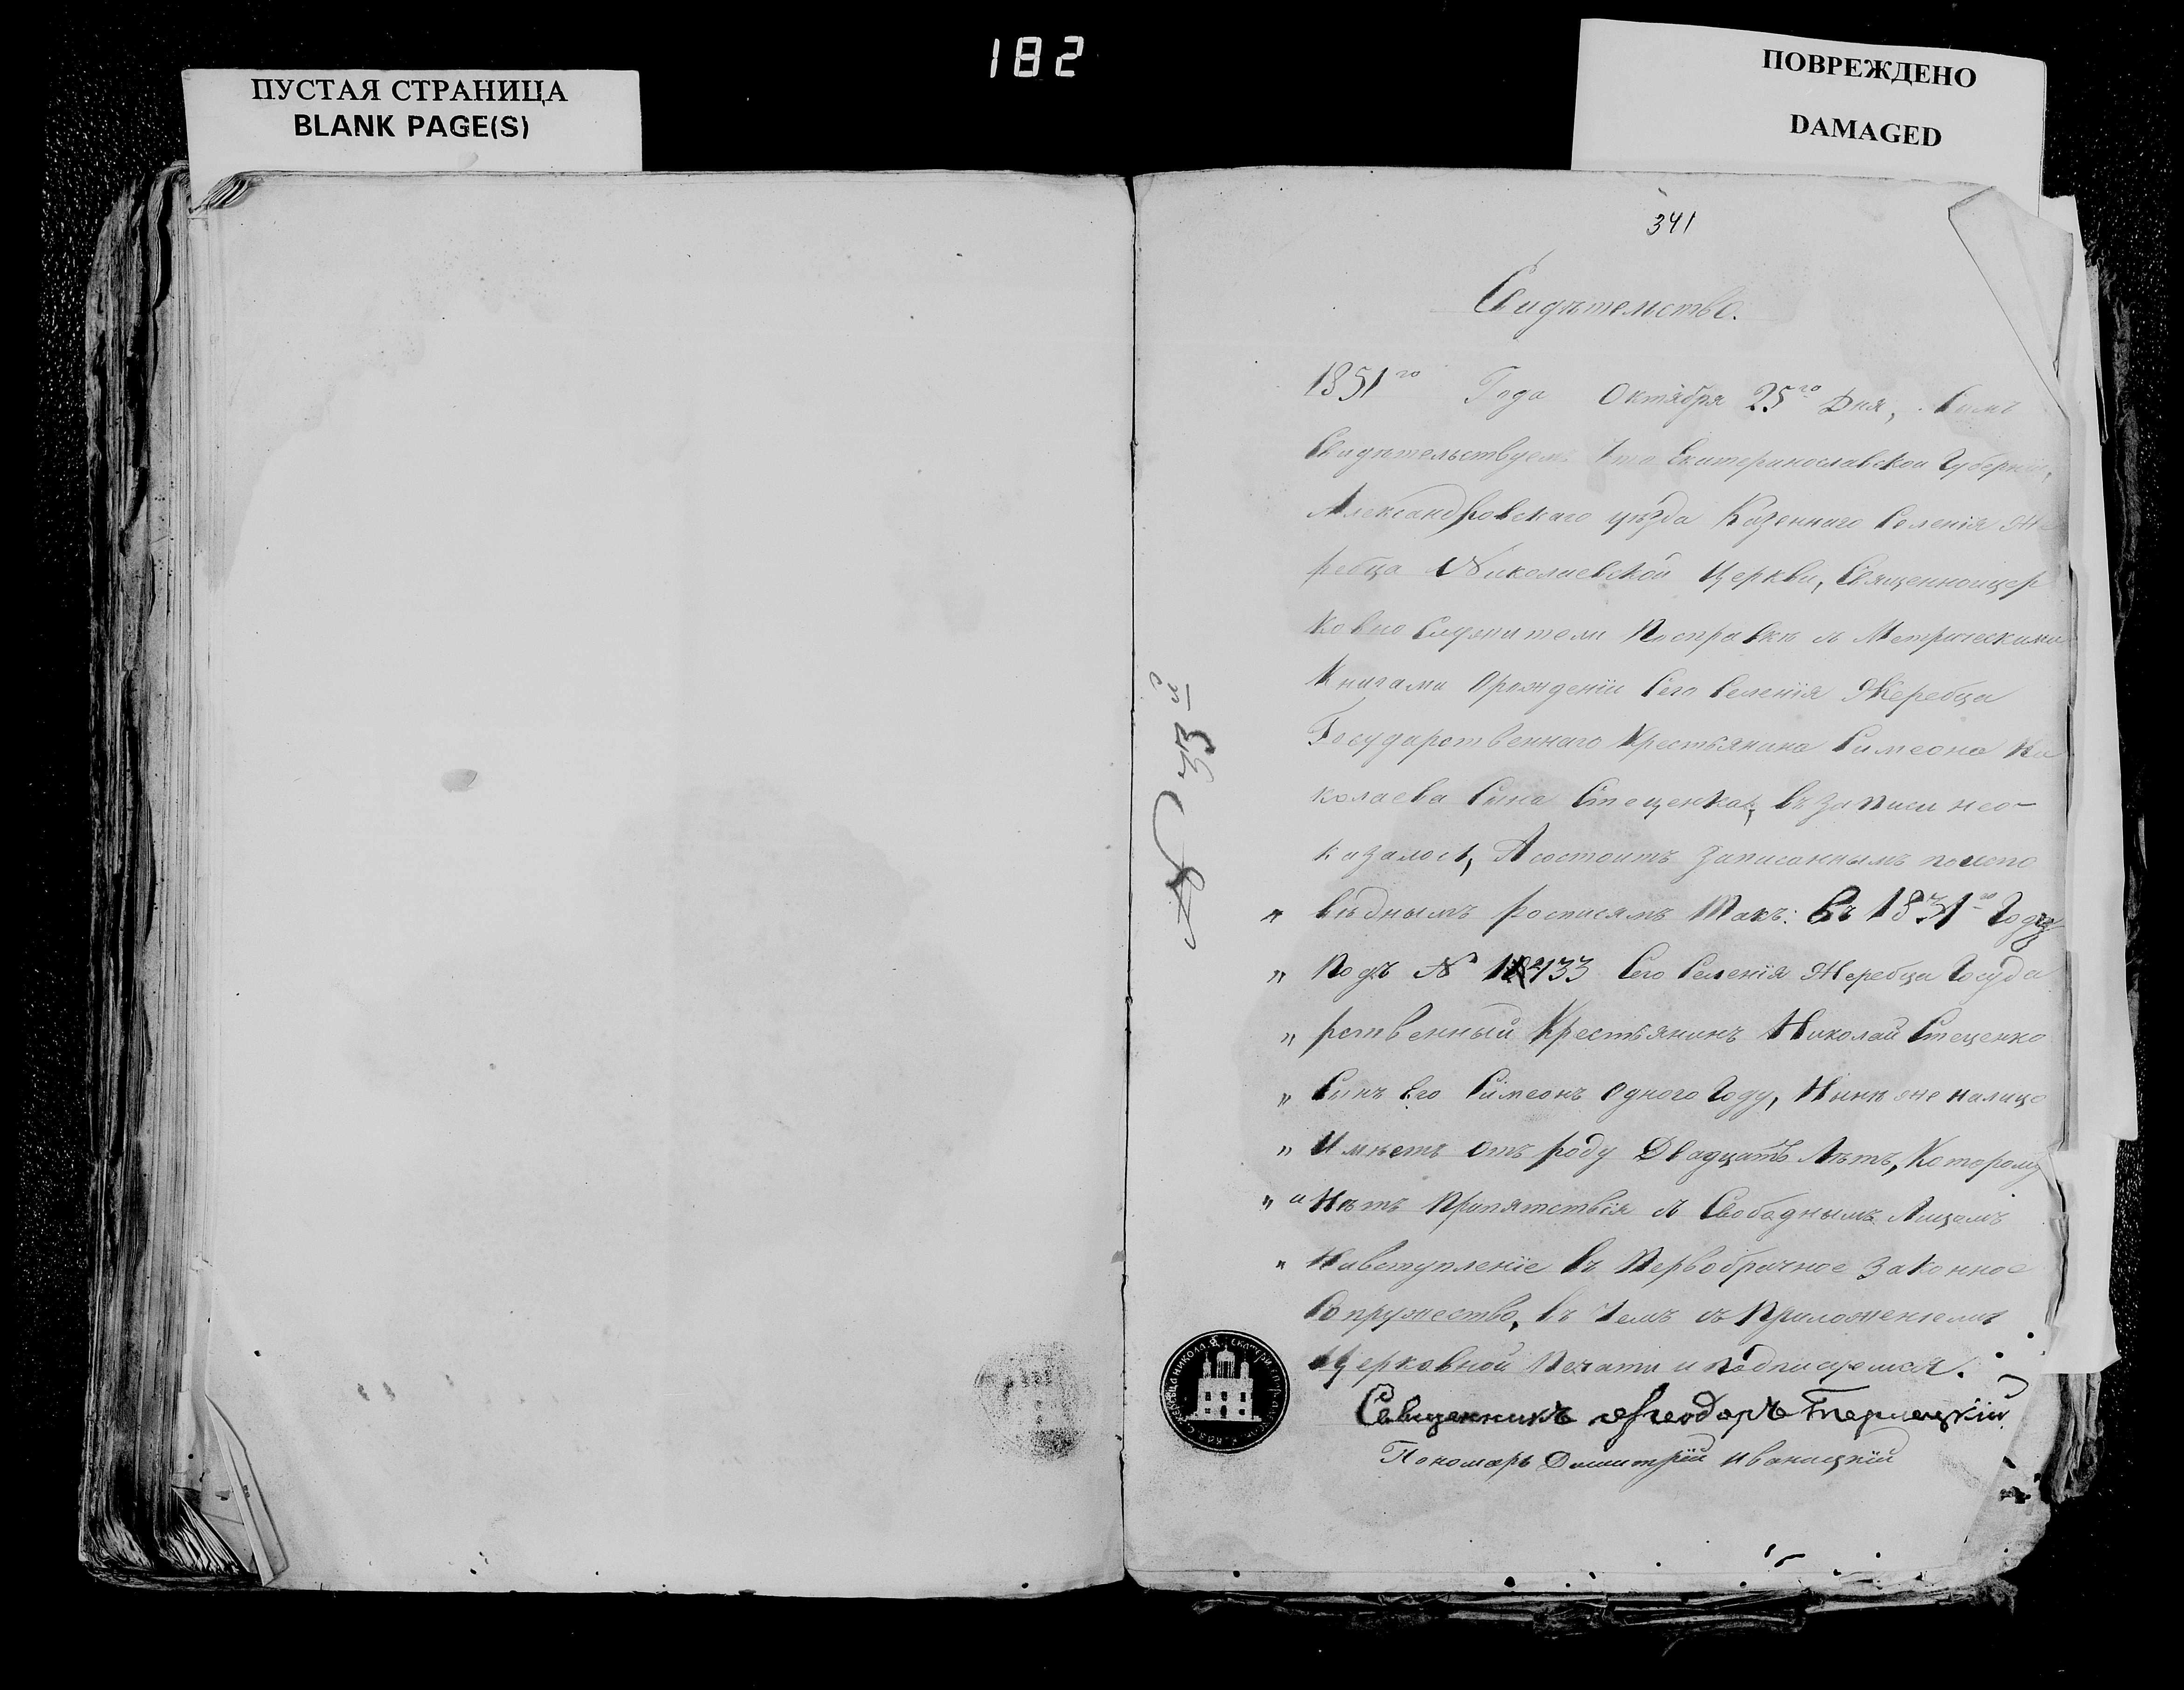 182
ПУСТАЯ СТРАНИЦА
BLANK PAGE(S)
ПОВРЕЖДЕНО
DAMAGED
341
Свидѣтельство.
1851го Года Октября 25го Дня, Симъ
Свидѣтельствуемъ Что Екатеринославской Губерніи,
Александровскаго уѣзда Казеннаго Селенія Же
ребца Николаевской Церкви, Священноцер
ковно Служители По справкѣ съ Метрическими
Книгами О рожденіи Сего Селенія Жеребца
Государственнаго Крестьянина Симеона Ни
колаева Сына Стеценка, въ записи нео-
казалось, А состоитъ записаннымъ по испо
„ вѣднымъ росписямъ Такъ: Въ 1831го Году
„ Подъ № 433 Сего Селенія Жеребца Госуда
„ рственный Крестьянинъ Николай Стеценко
„ Сынъ Его Симеонъ Одного Году, Нынѣ же налицо
„ Имѣетъ Отъ роду Двадцать Лѣтъ, Которому
„ и Нѣтъ Припятствія съ Свободнымъ Лицомъ
„ На вступленіе въ Первобрачное Законное
Сопружество, въ Чемъ съ Приложеніемъ
Церковной Печати и подписуемся.
Священникъ Ѳеодоръ Терлецкій
Пономарь Димитрій Иваницкій
№ 33й